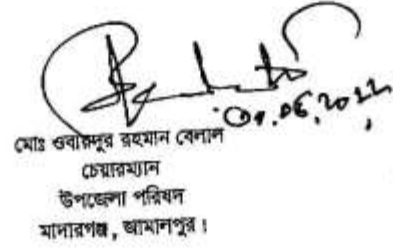 ০৭.০৬.২০২২
মোঃ ওবায়দুর রহমান বেলাল
চেয়ারম্যান
উপজেলা পরিষদ
মাদারগঞ্জ, জামালপুর।